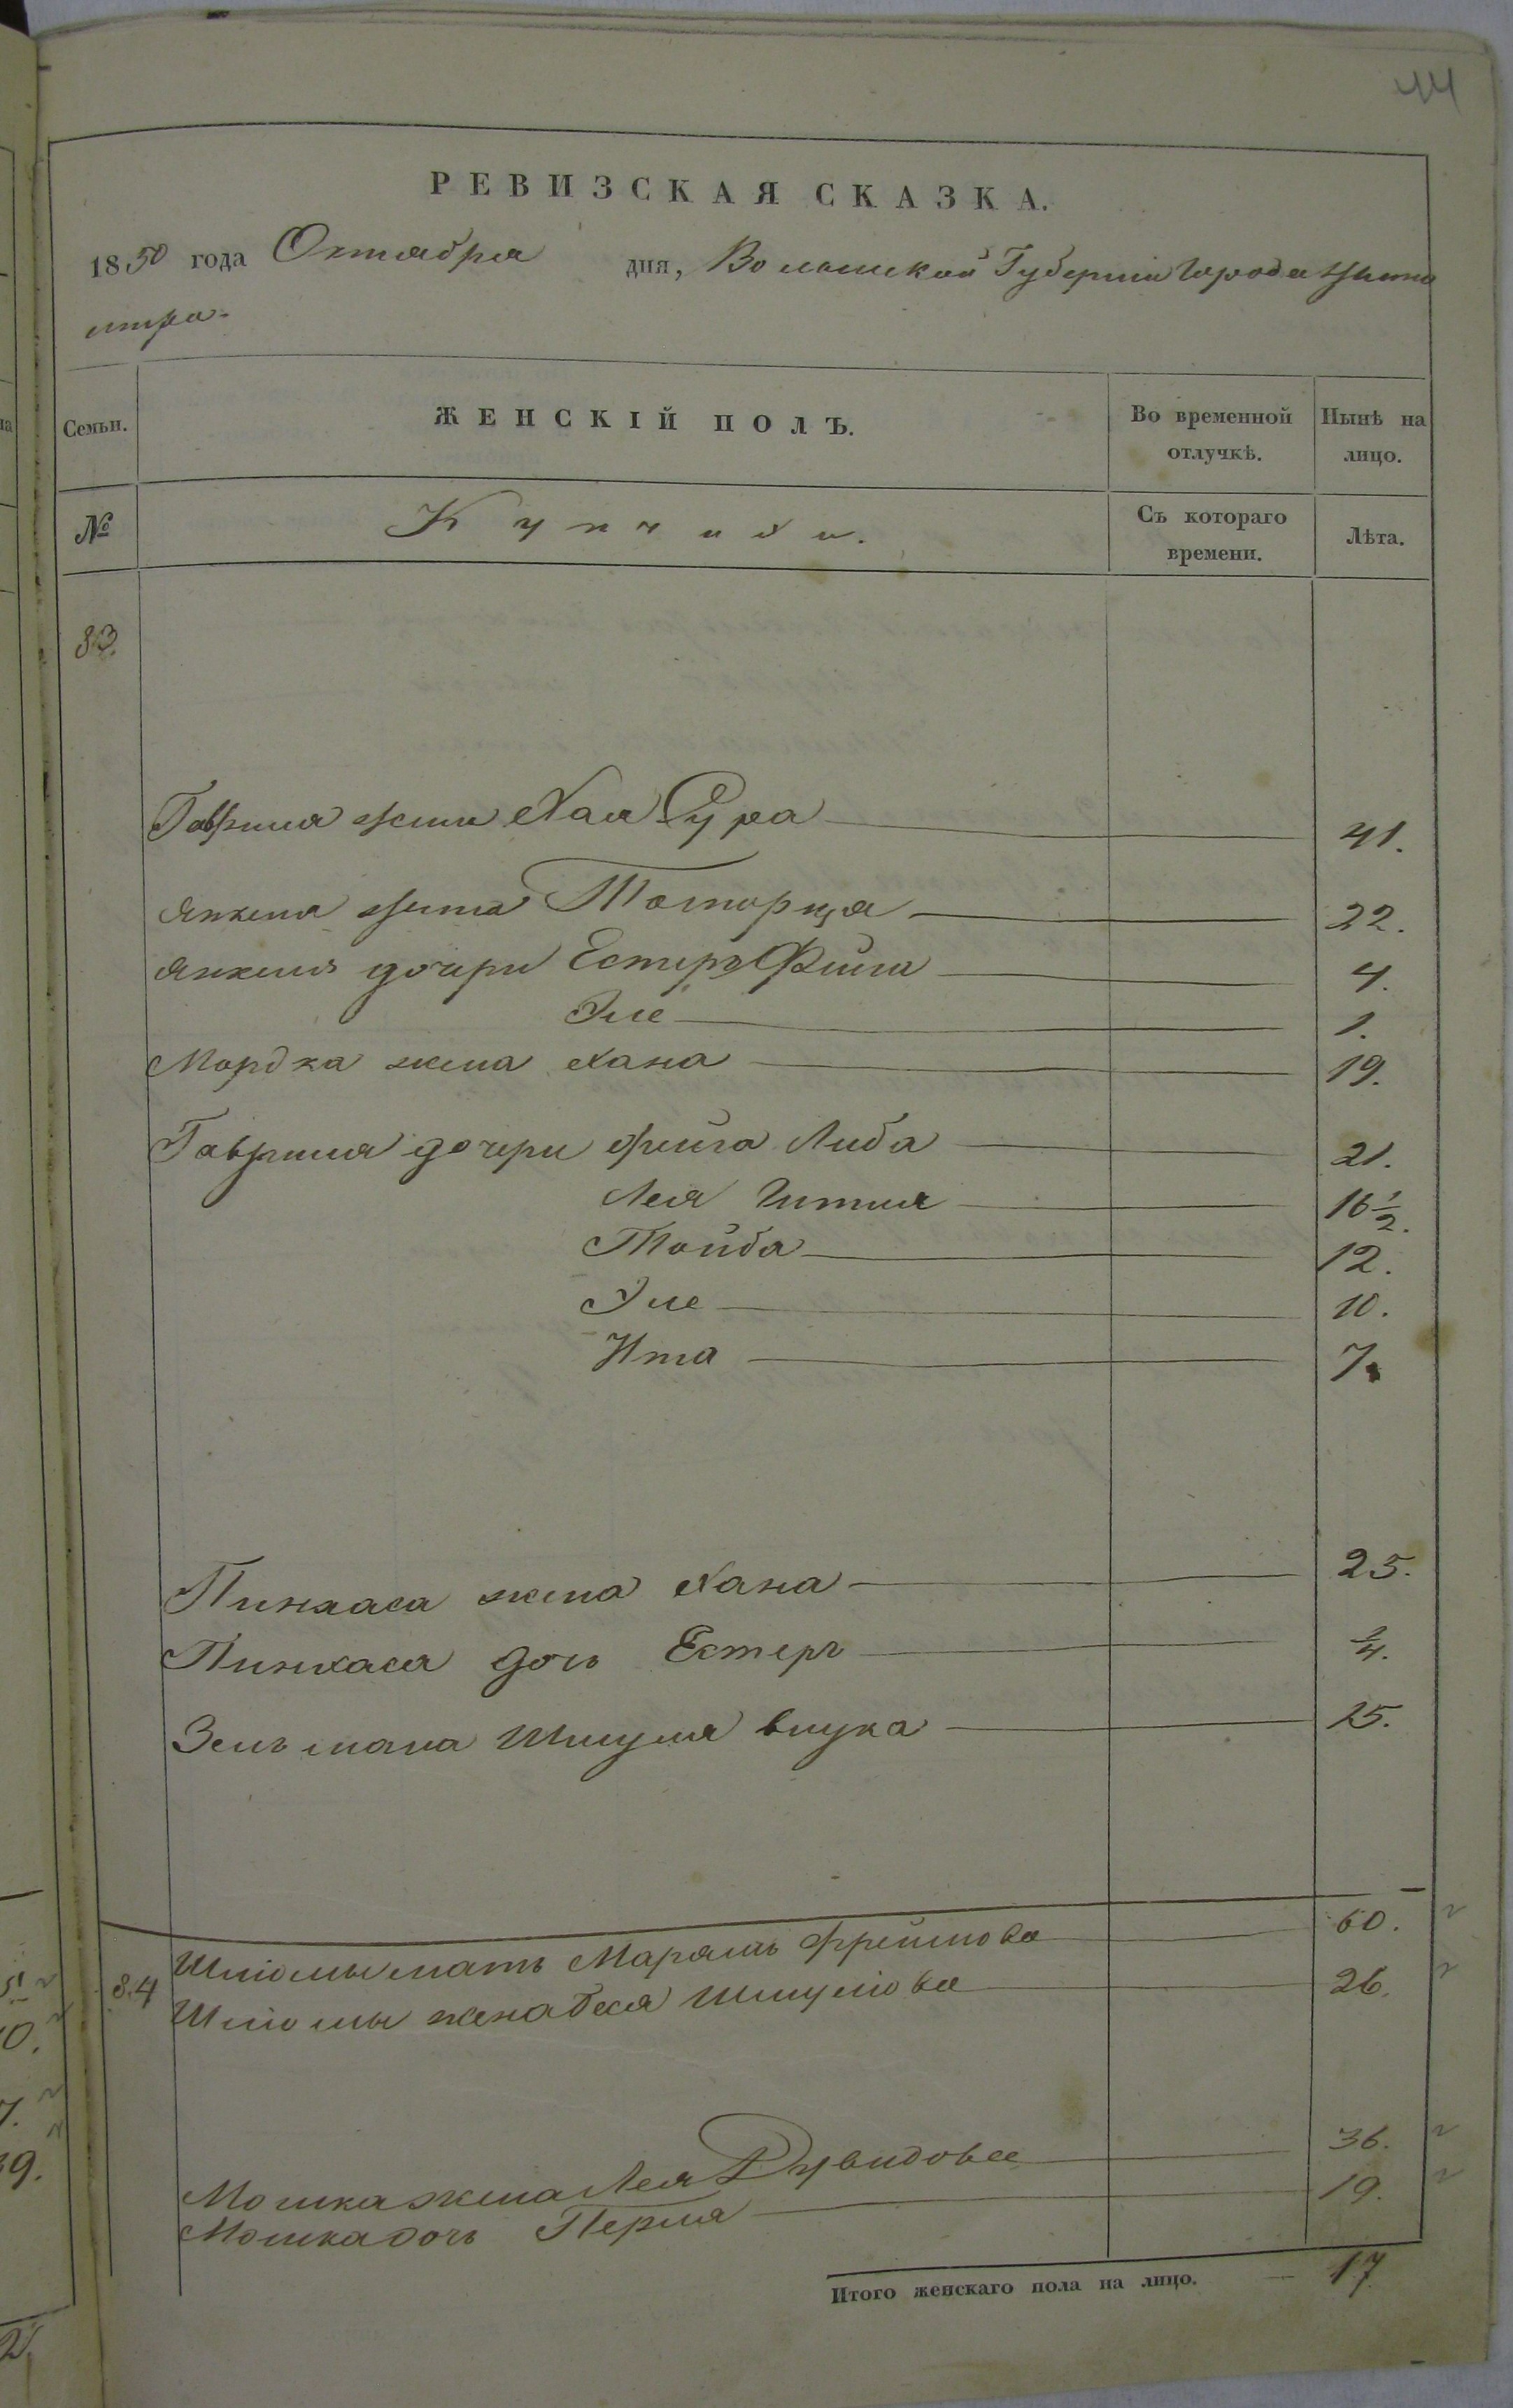 44
РЕВИЗСКАЯ СКАЗКА.
1850 года Октября дня, Волынской Губерніи Города Жито
мира.
Семьи.
ЖЕНСКІЙ ПОЛЪ.
Во временной отлучкѣ.
Нынѣ на лицо.
№
Купчихи.
Съ котораго времени.
Лѣта.
83.
Гавриля жена Хая Сура 41.
Янкеля жена Темерця 22.
Янкеля дочери Естеръ Фейга 4.
Эле 1.
Мордка жена Хана 19.
Гавриля дочери Фейга Либа 21.
Лея Гитля 16 1/2.
Тойба 12.
Эле 10.
Ита 7.
Пинхаса жена Хана 25.
Пинхаса дочь Естеръ 3/4.
Зельмана Шмуля внука 15.
84
Шлюмы мать Марямъ Фроймова 60.
Шлюмы жена Бася Шмулова 26.
Мошка жена Лея Дувидова 36.
Мошка дочь Перля 19.
Итого женскаго пола на лицо. — 17